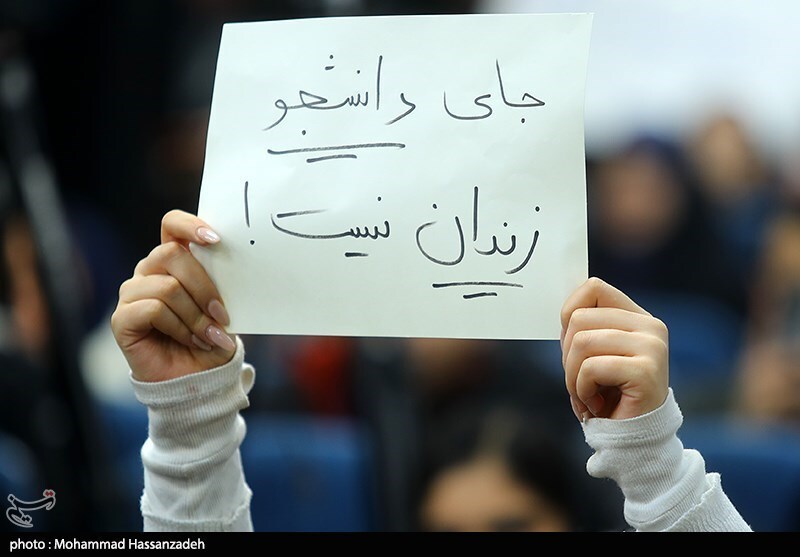 جای دانشجو
زندان نیست!
photo : Mohammad Hassanzadeh